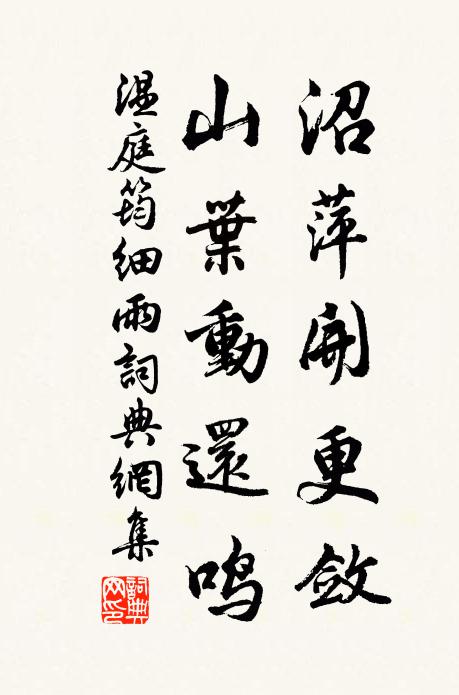 沼萍開更斂
山葉動還鳴
溫庭筠細雨詞典網集
詞典
网印